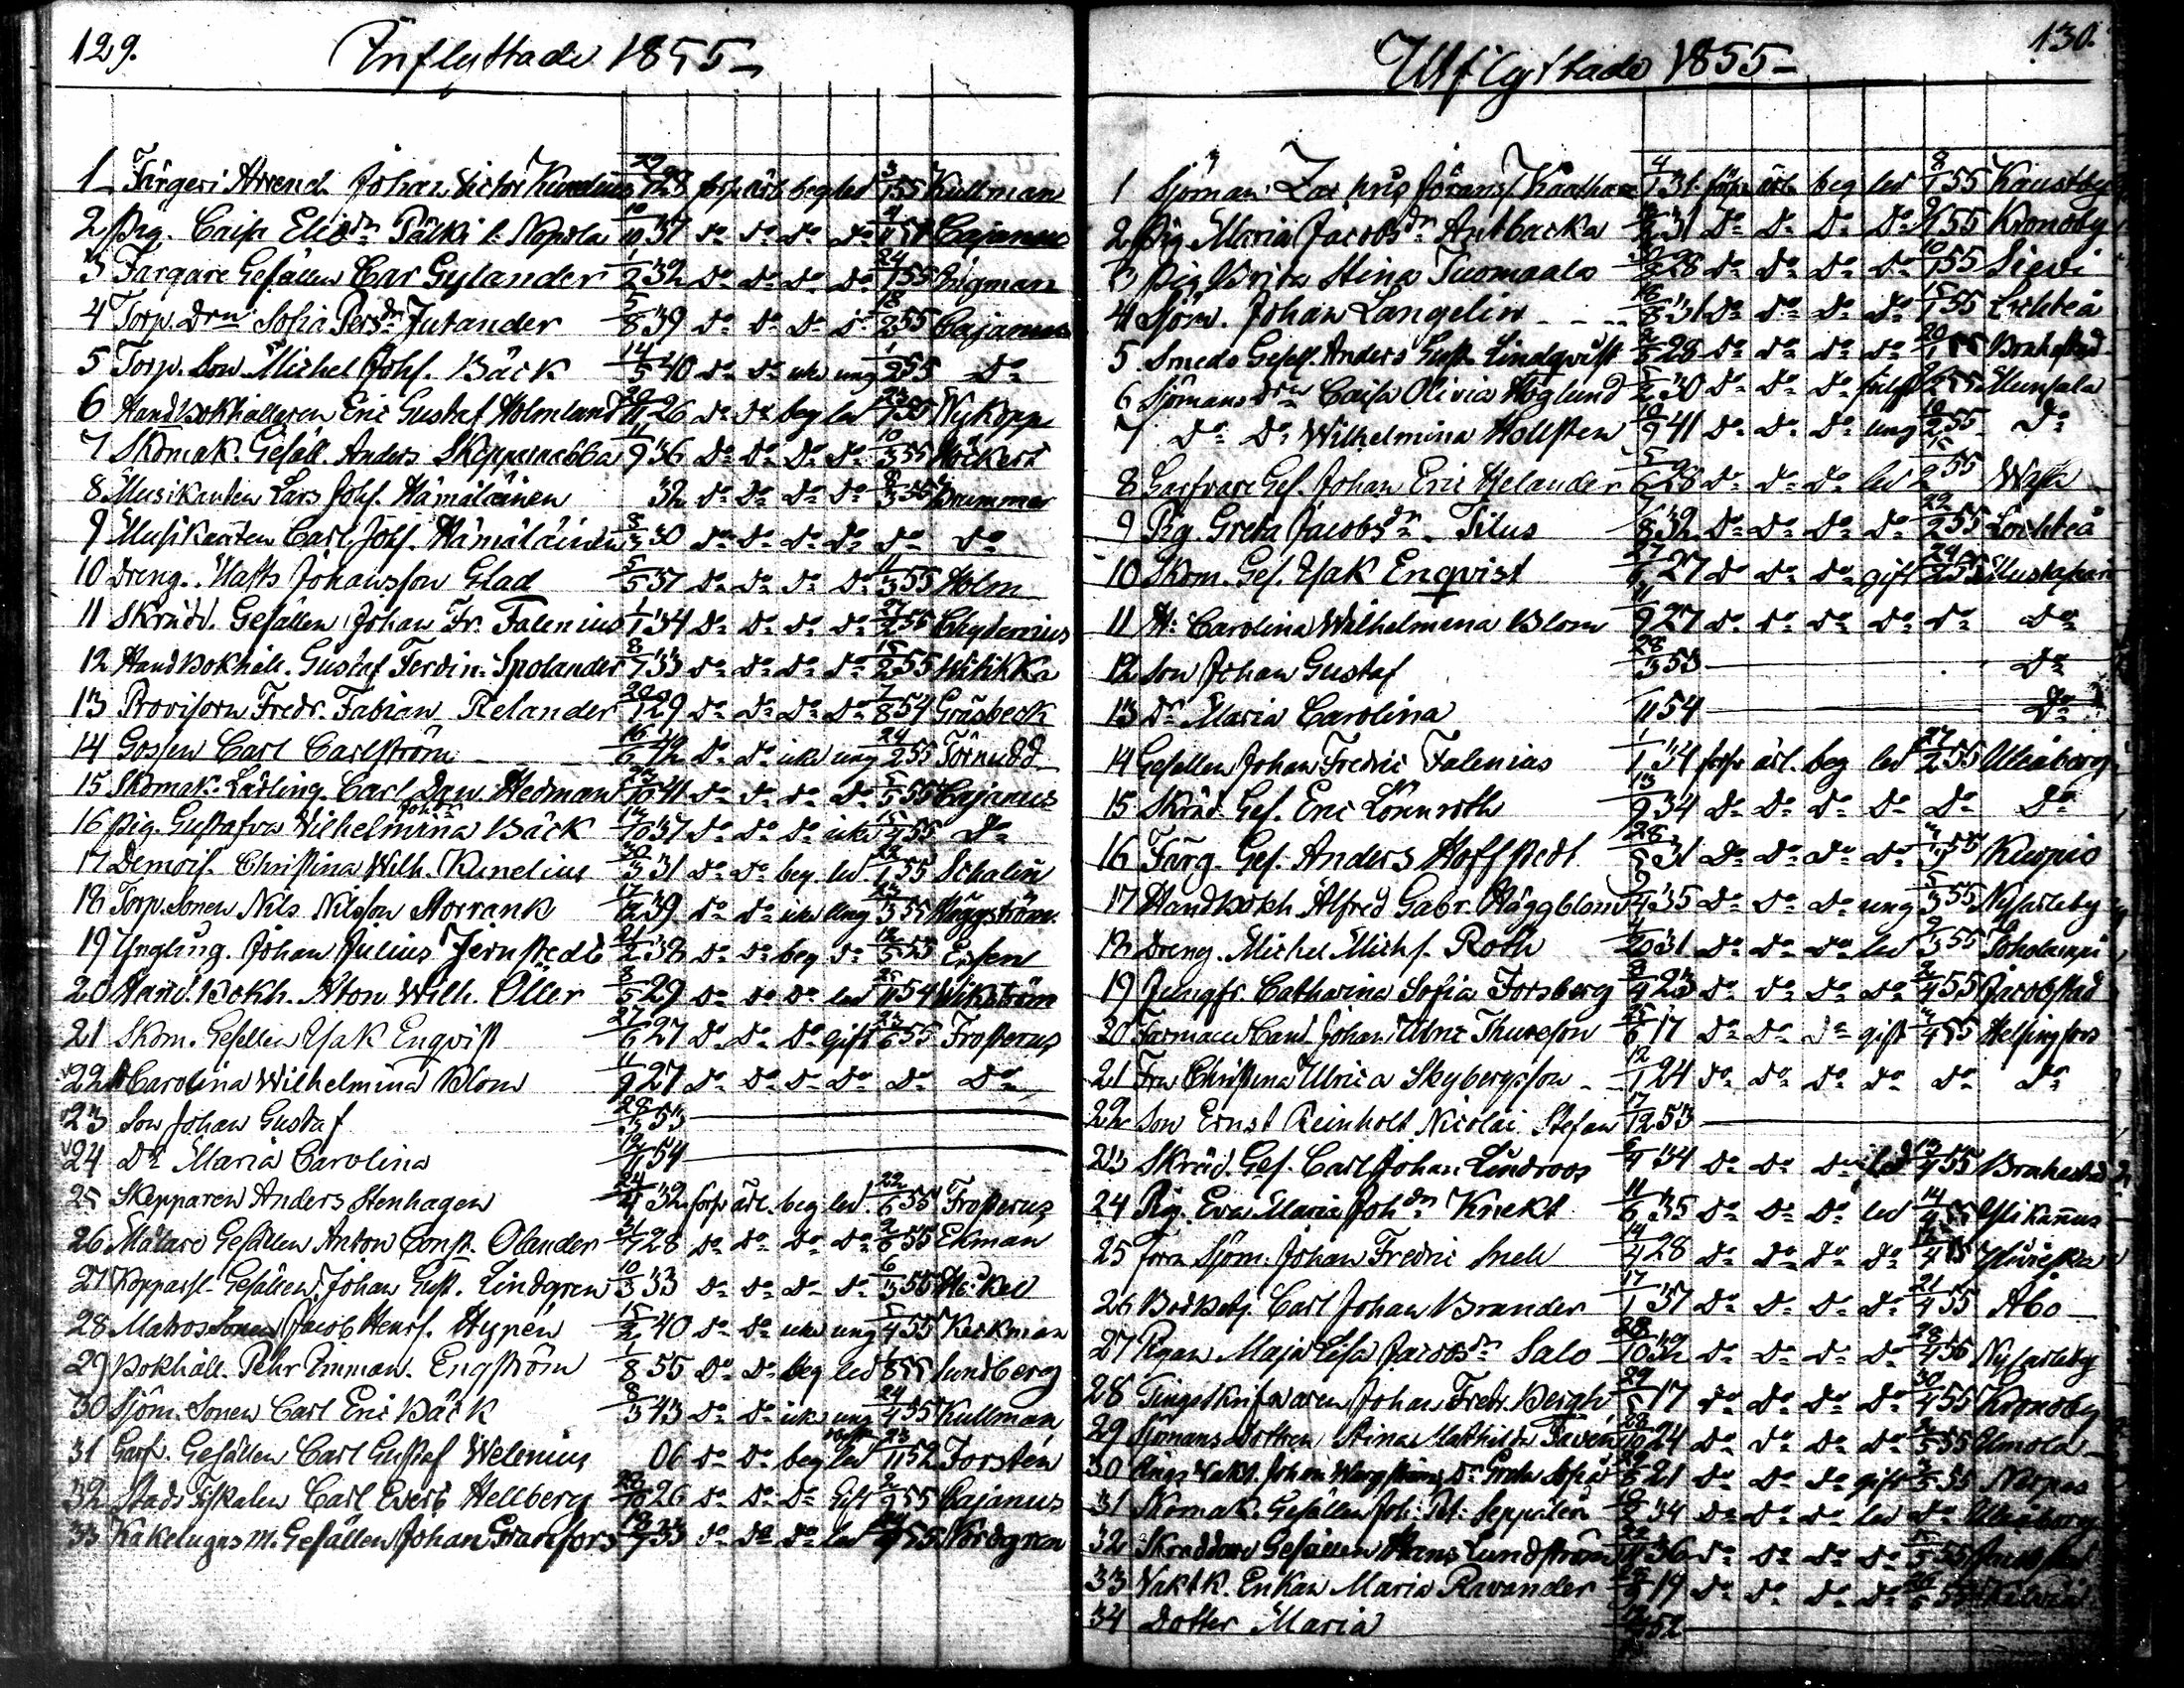 129.
Inflyttade 1855
1 Färgeri Arrend. Johan Victor Kunelius 29/1 28 forsv ärl beg led 3/1 55 Kullman
2 Pig. Caisa Elisdr Pälki l. Nopola 10/11 37 do do do do 54 Cajanus
3 Färgare Gesällen Car Gylander 1/2 32 do do do do 24/1 55 Bigman
4 Torp. Drn Sofia Persdr Jutander 5/8 39 do do do do 18/2 55 Cajanus
5 Torp. Son Michel Johs. Bäck 14/5 40 do do icke ung 1/2 55 do
6 Handbokhålleren Eric Gustaf Holmlund 26 do do beg led 55 Nykopp
7 Skomak. Gesäll. Anders Skepparabba 11/9 36 do do do do 10/3 55 Höckert
8 Musikanten Lars Johs. Hämäläinen 32 do do do do 8/3 55 Brummer
9 Musikanten Carl Johs. Hämäläinen 8/3 30 do do do do do do
10 Dreng. Matts Johansson Glad 5/5 37 do do do do 11/3 55 Holm
11 Skrädd. Gesällen Johan Fr. Falenius 1/1 34 do do do do 27/2 55 Chydenius
12 Handbokhåll. Gustaf Ferdin. Spolander 8/7 33 do do do do 15/2 55
13 Provisorn Fredr. Fabian Relander 20/1 29 do do do do 7/8 54 Gräsbeck
14 Gossen Carl Carlström 16/6 42 do do icke ung 24/2 55 Törnudd
15 Skomak. Lärling. Carl Dan. Hedman 41 do do do do 5/5 55 Cajanus
16 Pig. Gustafva Wilhelmina Johsdr Bäck 37 do do do icke 15/4 55 do
17 Demois. Christina Wilh. Kunelius 30/3 31 do do beg led 55 Schalin
18 Torp. Sonen Nils Nilsson Storrank 17 39 do do icke ung 55 Häggström
19 Yngling. Johan Julius Jernstedt 21/2 38 do do beg do 55 Essen
20 Hand. Bokh. Aton Wilh. Öller 8/5 29 do do do led 54 Wikström
21 Skom. Gesellen Isak Enqvist 27/6 27 do do do gift 23/6 55 Frosterus
22 H Carolina Wilhelmina Blom 11/9 27 do do do do do do
23 Son Johan Gustaf 28/3 53
24 Dr Maria Carolina 19/11 54
25 Skepparen Anders Stenhagen 24 32 forsv ärl. beg led 22/6 55 Frosterus
26 Målare Gesällen Anton Const. Olander 28 do do do do 55 Ekman
27 Kopparsl. Gesällen Johan Gust. Lindgren 10/3 33 do do do do 6/3 55
28 Matros Sonen Jacob Henrs. Hypén 15/2 40 do do icke ung 5/4 55 Keckman
29 Bokhåll. Pehr Imman. Engström 1/8 55 do do beg led 1/8 55 Sundberg
30 Sjöm. Sonen Carl Eric Bäck 8/3 43 do do icke ung 24/4 55 Kullman
31 Garf. Gesällen Carl Gustaf Welenius 06 do do beg led 23/11 52 Forstén
32 Stads Fiskalen Carl Evert Hellberg 28/10 26 do do do Gift 2/9 55 Cajanus
33 Kakelugns m. Gesällen Johan Granfors 33 do do do led 55 Nordgren
130.
Utflyttade 1855
1 Sjöman 4/1 31 försv ärl beg led 8/1 55 Kaustby
2 Pig Maria Jacobsdr Antbacka 31 do do do do 55 Kronoby
3 Pig Brita Stina Tuomaala 28 do do do do 10/1 55 Sievi
4 Sjöm. Johan Langelin 16/8 31 do do do do 15/1 55 Lochteå
5 Smeds Gesell. Anders Gust. Lindqvist 28 do do do do 20/1 55 Brahestad
6 Sjömans Drn Caisa Olivia Höglund 30 do do do 55 Munsala
7 do do Wilhelmina Hollsten 10/9 41 do do do ung 55 do
8 Garfvare Ges. Johan Eric Helander 5/6 28 do do do led 15/2 55 Wasa
9 Pig. Greta Jacobsdr Titus 7/8 32 do do do do 22/2 55 Lochteå
10 Skom. Ges. Isak Enqvist 27/6 27 do do do gift 24/2 55
11 H: Carolina Wilhelmina Blom 11/9 27 do do do do do do
12 Son Johan Gustaf 28/3 53 do
13 Dr Maria Carolina 11 54 do
14 Gesellen Johan Fredric Falenius 1/1 34 forsv ärl. beg led 27/2 55 Uleåborg
15 Skräd. Ges. Eric Lönnroth 13/9 34 do do do do do do
16 Färg. Ges. Anders Hoffstedt 28/8 31 do do do do 55 Kuopio
17 Handbokh Alfred Gabr. Häggblom 9/4 35 do do do ung 5/3 55 Nycarleby
18 Dreng. Michel Michs. Roth 31 do do do led 9/3 55 Toholampi
19 Jungfr. Catharina Sofia Forsberg 23 do do do do 2/4 55 Jacobstad
20 Farmaceu Cand. Johan Thureson 25/6 17 do do do gift 4 55 Helsingfors
21 Fru Christina Ulrica Skybergsson 12/1 24 do do do do do do
22 Son Ernst Reinholt Nicolai Stefan 17/12 53
23 Skräd. Ges. Carl Johan Lindroos 6/4 34 do do do led 13/4 55 Brahestad
24 Pig. Eva Maria Johdr Knekt 11/6 35 do do do led 14/4 55 Ylikannus
25 forn Sjöm. Johan Fredric 14/4 28 do do do do 4 55
26 Bodbetj. Carl Johan Brander 17/1 37 do do do do 21/4 55 Åbo
27 Pigan Maja Lisa Jacobsdr Salo 28/10 32 do do do do 28/4 55 Nycarleby
28 Tingsskrifvaren Johan Fredr. Bergh 29 17 do do do do 30/4 55 Kronoby
29 Sjömans Dottren Stina Mathilda 24 do do do do 55
30 Johan 21 do do do gift 55 Närpes
31 Skomak. Gesällen Joh: Seppälin 34 do do do led do Uleåborg
32 Skräddare Gesällen Hans Lundström 36 do do do do 5/5 55
33 Vaktk. Enkan Maria Ravander 19 do do do do 26/5 55
34 Dotter Maria 52